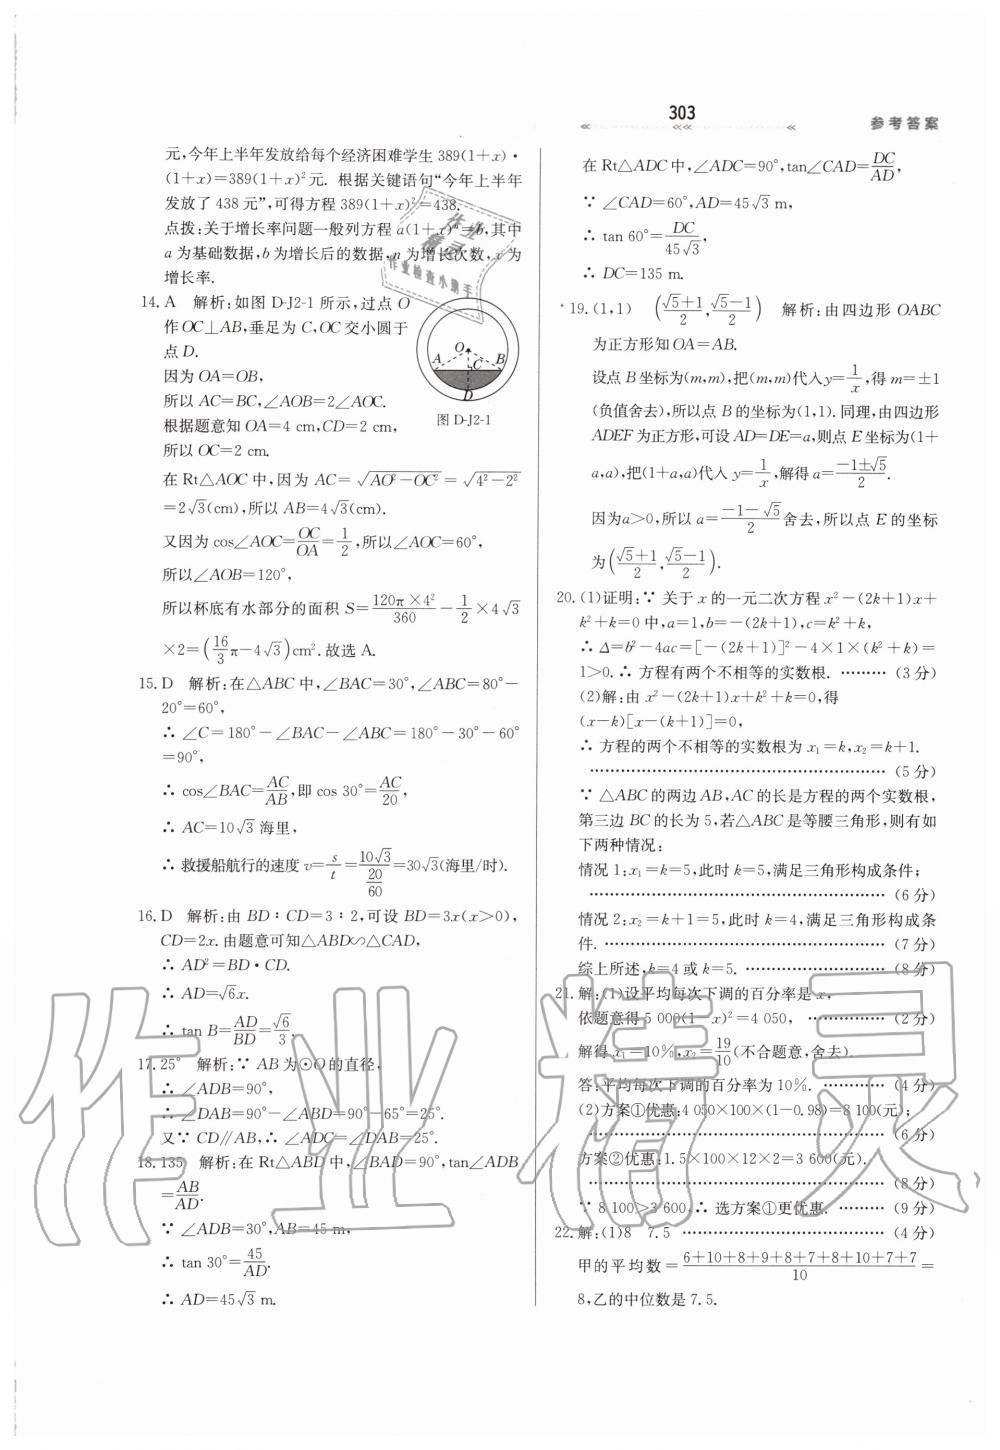 303
参考答案
元,今年上半年发放给每个经济困难学生 389(1+x)·
(1+x)=389(1+x)²元. 根据关键语句“今年上半年
发放了 438 元”,可得方程 389(1+x)²=438.
点拨:关于增长率问题一般列方程 a(1+x)ⁿ=b,其中
a 为基础数据,b 为增长后的数据,n 为增长次数,x 为
增长率.
14. A 解析:如图 D-J2-1 所示,过点 O
作 OC⊥AB,垂足为 C,OC 交小圆于
点 D.
因为 OA=OB,
所以 AC=BC,∠AOB=2∠AOC.
根据题意知 OA=4 cm,CD=2 cm,
所以 OC=2 cm.
O
A
B
C
D
图 D-J2-1
在 Rt△AOC 中,因为 AC=√(AO²-OC²)=√(4²-2²)
=2√3(cm),所以 AB=4√3(cm).
又因为 cos∠AOC=OC/OA=1/2,所以∠AOC=60°,
所以∠AOB=120°,
所以杯底有水部分的面积 S=120π×4²/360-1/2×4√3
×2=(16/3π-4√3)cm².故选 A.
15. D 解析:在△ABC 中,∠BAC=30°,∠ABC=80°-
20°=60°,
∴ ∠C=180°-∠BAC-∠ABC=180°-30°-60°
=90°,
∴ cos∠BAC=AC/AB,即 cos 30°=AC/20,
∴ AC=10√3 海里,
∴ 救援船航行的速度 v=s/t=10√3/(20/60)=30√3(海里/时).
16. D 解析:由 BD∶CD=3∶2,可设 BD=3x(x>0),
CD=2x.由题意可知△ABD∽△CAD,
∴ AD²=BD·CD.
∴ AD=√6x.
∴ tan B=AD/BD=√6/3.
17. 25° 解析:∵ AB 为⊙O 的直径,
∴ ∠ADB=90°,
∴ ∠DAB=90°-∠ABD=90°-65°=25°.
又∵ CD∥AB,∴ ∠ADC=∠DAB=25°.
18. 135 解析:在 Rt△ABD 中,∠BAD=90°,tan∠ADB
=AB/AD.
∵ ∠ADB=30°,AB=45 m,
∴ tan 30°=45/AD.
∴ AD=45√3 m.
在 Rt△ADC 中,∠ADC=90°,tan∠CAD=DC/AD,
∵ ∠CAD=60°,AD=45√3 m,
∴ tan 60°=DC/45√3,
∴ DC=135 m.
19. (1,1) ((√5+1)/2,(√5-1)/2) 解析:由四边形 OABC
为正方形知 OA=AB.
设点 B 坐标为(m,m),把(m,m)代入y=1/x,得 m=±1
(负值舍去),所以点 B 的坐标为(1,1).同理,由四边形
ADEF 为正方形,可设 AD=DE=a,则点 E 坐标为(1+
a,a),把(1+a,a)代入 y=1/x,解得 a=(-1±√5)/2.
因为a>0,所以 a=(-1-√5)/2舍去,所以点 E 的坐标
为((√5+1)/2,(√5-1)/2).
20. (1)证明:∵ 关于 x 的一元二次方程 x²-(2k+1)x+
k²+k=0 中,a=1,b=-(2k+1),c=k²+k,
∴ Δ=b²-4ac=[-(2k+1)]²-4×1×(k²+k)=
1>0.∴ 方程有两个不相等的实数根. ……… (3 分)
(2)解:由 x²-(2k+1)x+k²+k=0,得
(x-k)[x-(k+1)]=0,
∴ 方程的两个不相等的实数根为 x₁=k,x₂=k+1.
……………………………………………… (5 分)
∵ △ABC 的两边 AB,AC 的长是方程的两个实数根,
第三边 BC 的长为 5,若△ABC 是等腰三角形,则有如
下两种情况:
情况 1:x₁=k=5,此时 k=5,满足三角形构成条件;
……………………………………………… (6 分)
情况 2:x₂=k+1=5,此时 k=4,满足三角形构成条
件. …………………………………………… (7 分)
综上所述,k=4 或 k=5. …………………… (8 分)
21. 解:(1)设平均每次下调的百分率是 x,
依题意得 5 000(1-x)²=4 050, …………… (2 分)
解得 x₁=10%,x₂=19/10(不合题意,舍去).
答:平均每次下调的百分率为 10%. ……… (4 分)
(2)方案①优惠:4 050×100×(1-0.98)=8 100(元);
……………………………………………… (6 分)
方案②优惠:1.5×100×12×2=3 600(元).
……………………………………………… (8 分)
∵ 8 100>3 600,∴ 选方案①更优惠. ……… (9 分)
22. 解:(1)8 7.5 ……………………………… (4 分)
甲的平均数=(6+10+8+9+8+7+8+10+7+7)/10=
8,乙的中位数是 7.5.
作业精灵
作业检查小助手
作业精灵